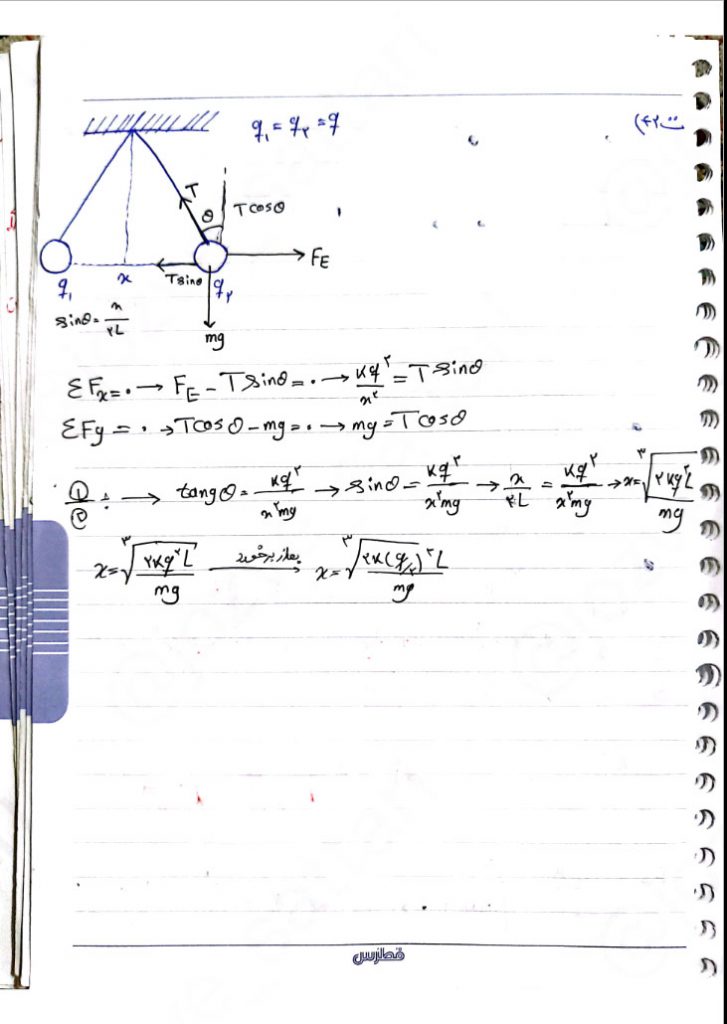 ت ۴۲)
q₁ = q₂ = q
T
θ
T cosθ
F_E
x
T sinθ
q₁
q₂
sinθ = x/۲L
mg
ΣFx = ۰ → F_E - T sinθ = ۰ → kq²/x² = T sinθ
ΣFy = ۰ → T cosθ - mg = ۰ → mg = T cosθ
①/② ÷ → tang θ = kq²/x²mg → sinθ = kq²/x²mg → x/۲L = kq²/x²mg → x = ∛(۲kq²L/mg)
x = ∛(۲kq²L/mg) بعد از برخورد → x = ∛(۲k(q/۲)²L/mg)